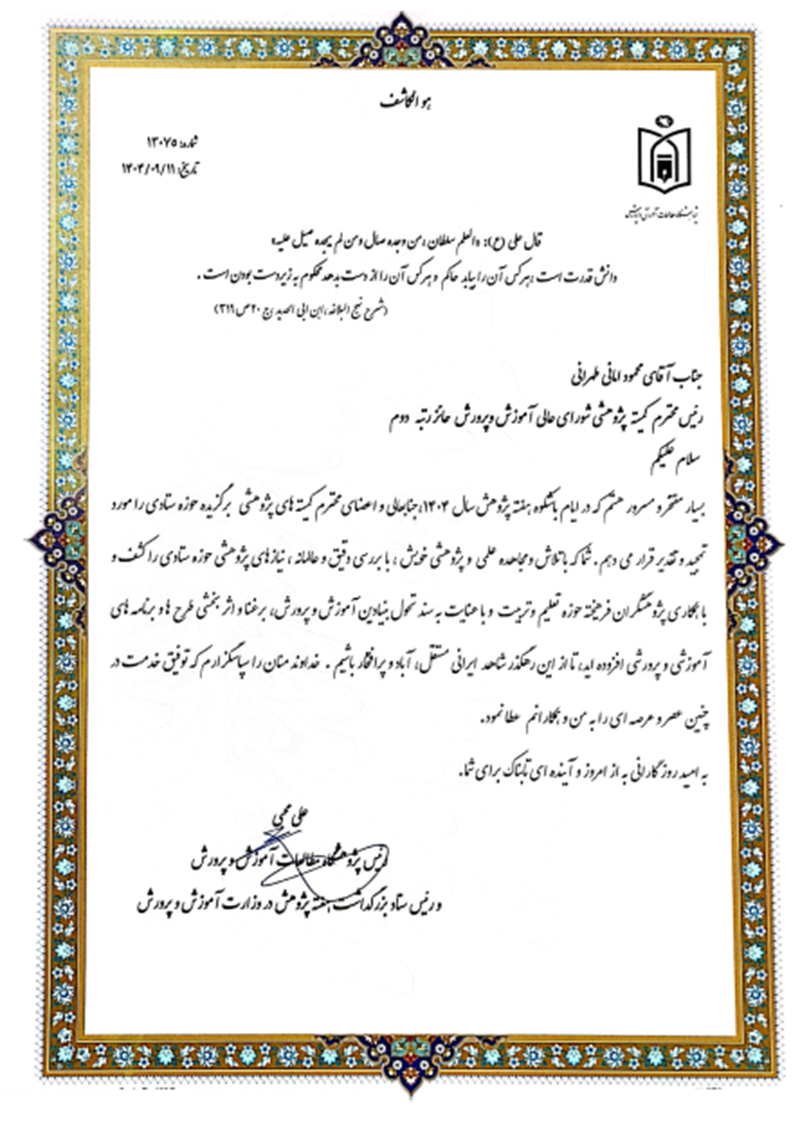 هو الکاشف
شماره: ۱۳۰۷۵
تاریخ: ۱۴۰۴/۰۹/۱۱
پژوهشگاه مطالعات آموزش و پرورش
قال علی (ع): «العلم سلطان، من وجده صال و من لم یجده صیل علیه»
دانش قدرت است، هر کس آن را بیابد حاکم و هر کس آن را از دست بدهد محکوم به زیردست بودن است.
(شرح نهج البلاغه، ابن ابی الحدید ج ۲۰ ص ۳۱۹)
جناب آقای محمود امانی طهرانی
رئیس محترم کمیته پژوهشی شورای عالی آموزش و پرورش حائز رتبه دوم
سلام علیکم
بسیار مفتخر و مسرور هستم که در ایام باشکوه هفته پژوهش سال ۱۴۰۴، جنابعالی و اعضای محترم کمیته های پژوهشی برگزیده حوزه ستادی را مورد
تمجید و تقدیر قرار می دهم. شما که با تلاش و مجاهده علمی و پژوهشی خویش، با بررسی دقیق و عالمانه، نیازهای پژوهشی حوزه ستادی را کشف و
با همکاری پژوهشگران فرهیخته حوزه تعلیم و تربیت و با عنایت به سند تحول بنیادین آموزش و پرورش، بر غنا و اثر بخشی طرح ها و برنامه های
آموزشی و پرورشی افزوده اید، تا از این رهگذر شاهد ایرانی مستقل، آباد و پرافتخار باشیم. خداوند منان را سپاسگزارم که توفیق خدمت در
چنین عصر و عرصه ای را به من و همکارانم عطا نمود.
به امید روزگارانی به از امروز و آینده ای تابناک برای شما.
علی محبی
رئیس پژوهشگاه مطالعات آموزش و پرورش
و رئیس ستاد بزرگداشت هفته پژوهش در وزارت آموزش و پرورش